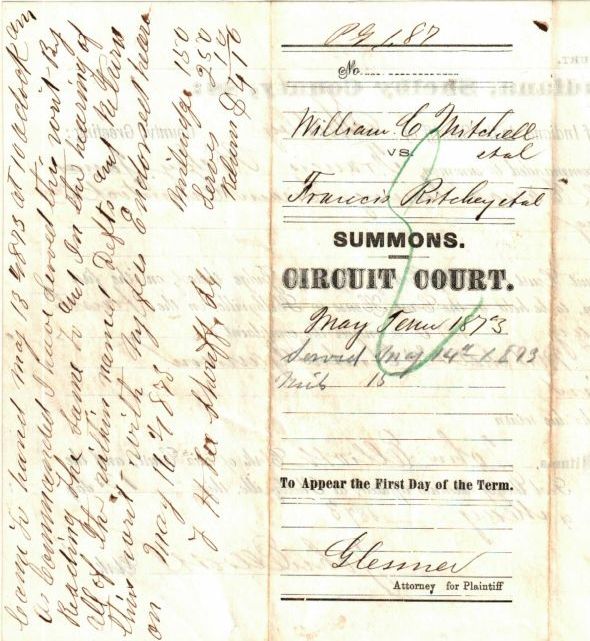 PG 1.87
No.
William C Mitchell
VS. etal
Francis Ritchey etal
SUMMONS.
CIRCUIT COURT.
May Term 1873
Served May 14th 1873
Mils 15
To Appear the First Day of the Term.
Glesner
Attorney for Plaintiff
Came to hand may 13 1873 at 10 oclock am
as Commanded I have Served this writ By
Reading the Same to and In the hearing of
All of the within named Defts and Return
this writ with My fees Endorsed heare
on May 16th 1873
Sheriff
Mileage 150
Serv 250
Return 10
$4 10